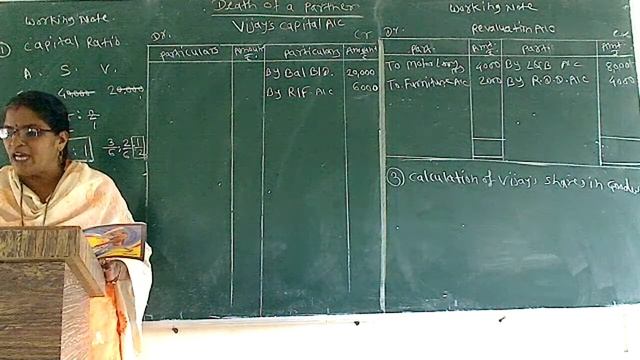 Working Note
① Capital Ratio
A. S. V.
40,000 20,000
3/6 : 2/6 1/6
Death of a Partner
Vijay's Capital A/c
Dr. Cr
Particulars Amount Particulars Amount
By Bal B/D. 20,000
By R/F. A/c 6000
Working Note
Dr. Revaluation A/c
Part. Amt Parti. Amt
To Motor Lorry 4000 By L&B A/C 8000
To Furniture A/c 2000 By R.D.D. A/C 4000
③ Calculation of Vijay's share in